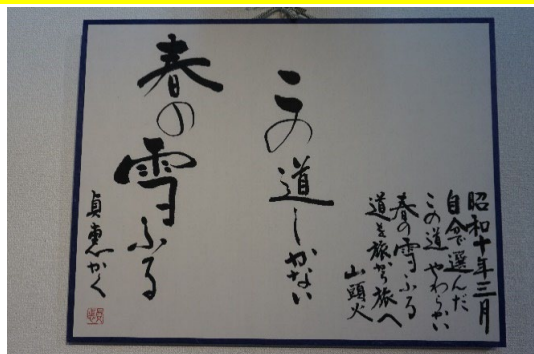 昭和十年三月
自分で選んだ
この道 やわらかい
春の雪ふる
道を旅から旅へ
山頭火
この道しかない
春の雪ふる
貞恵かく